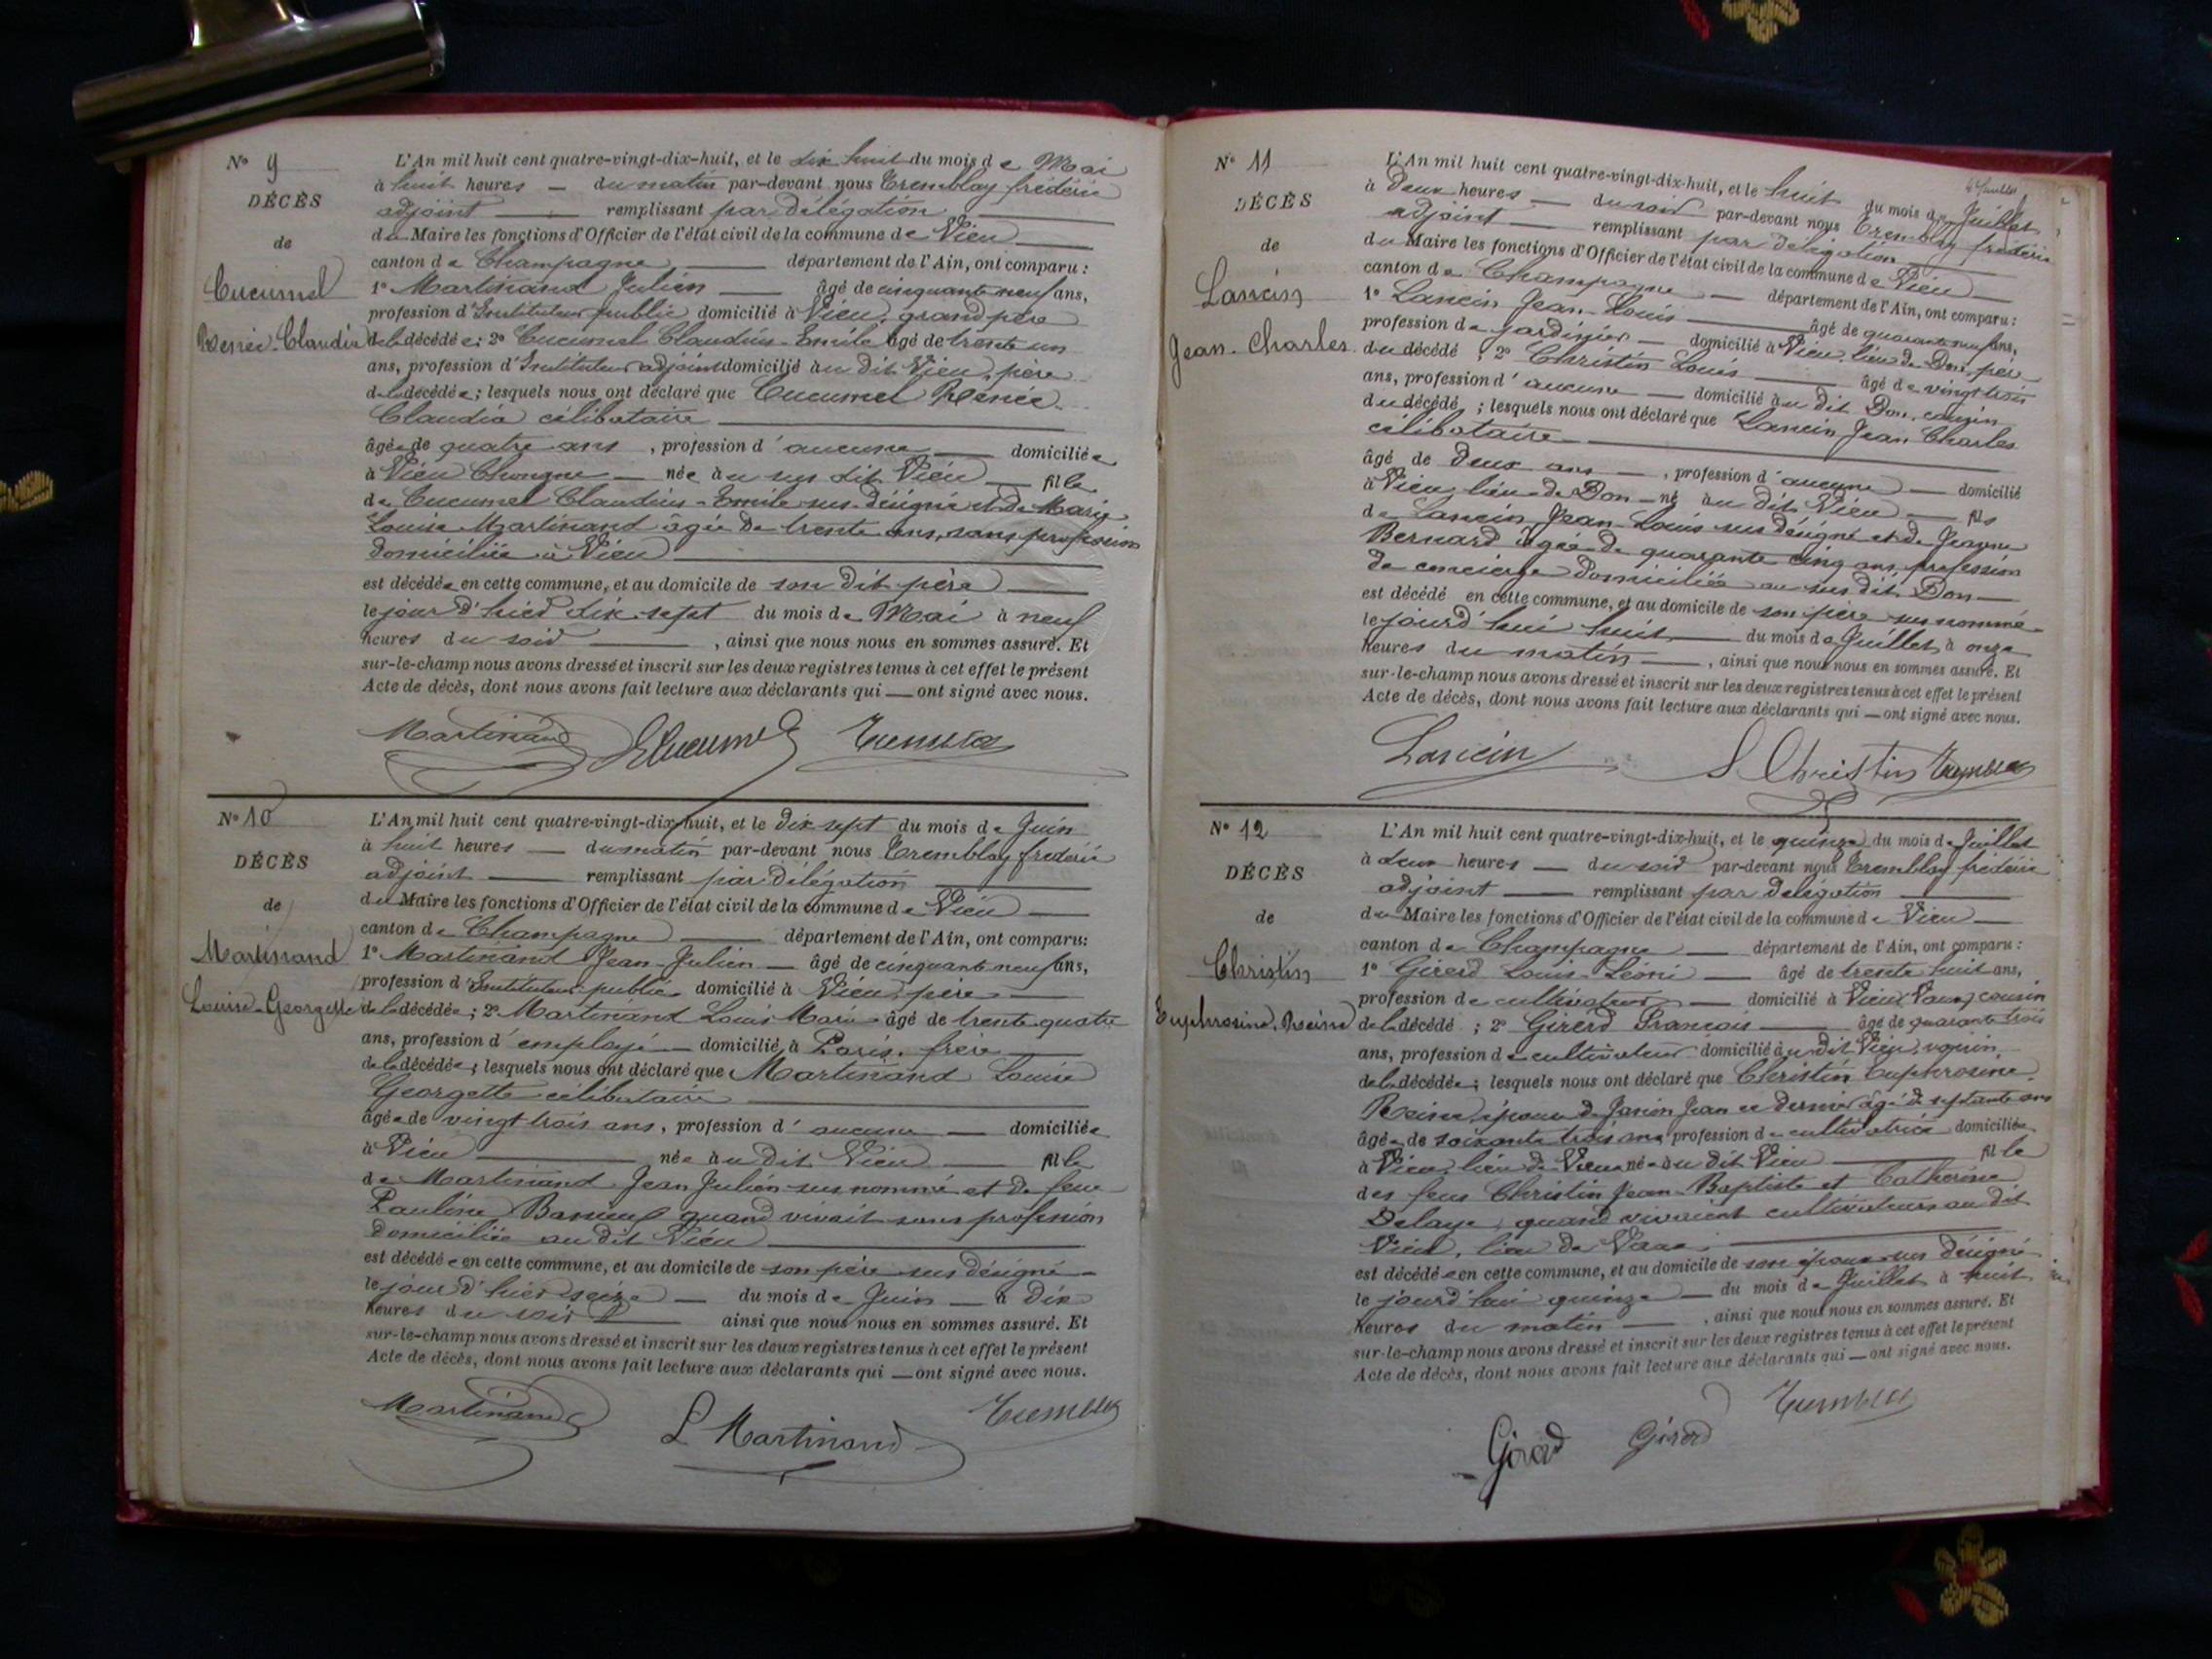 N° 9
DÉCÈS
de
Cucumel
Renée-Claudia
L'An mil huit cent quatre-vingt-dix-huit, et le dix huit du mois de Mai
à huit heures — du matin par-devant nous Tremblay frédéric
adjoint — remplissant par délégation
du Maire les fonctions d'Officier de l'état civil de la commune de Vieu
canton de Champagne — département de l'Ain, ont comparu :
1° Martinand Julien — âgé de cinquante neuf ans,
profession d'Instituteur public domicilié à Vieu, grand père
de la décédée ; 2° Cucumel Claudius-Emile âgé de trente un
ans, profession d'Instituteur adjoint domicilié au dit Vieu, père
de la décédée ; lesquels nous ont déclaré que Cucumel Renée-
Claudia célibataire
âgée de quatre ans , profession d'aucune — domiciliée
à Vieu — née au sus dit Vieu — fille
de Cucumel Claudius-Emile sus-désigné et de Marie
Louise Martinand âgée de trente ans, sans profession
domiciliée à Vieu
est décédée en cette commune, et au domicile de son dit père
le jour d'hier dix sept du mois de Mai à neuf
heures du soir — , ainsi que nous nous en sommes assuré. Et
sur-le-champ nous avons dressé et inscrit sur les deux registres tenus à cet effet le présent
Acte de décès, dont nous avons fait lecture aux déclarants qui — ont signé avec nous.
Martinand Cucumel Tremblay
N° 10
DÉCÈS
de
Martinand
Louise-Georgette
L'An mil huit cent quatre-vingt-dix-huit, et le dix sept du mois de Juin
à huit heures — du matin par-devant nous Tremblay frédéric
adjoint — remplissant par délégation
du Maire les fonctions d'Officier de l'état civil de la commune de Vieu
canton de Champagne — département de l'Ain, ont comparu :
1° Martinand Jean-Julien — âgé de cinquante neuf ans,
profession d'Instituteur public domicilié à Vieu, père
de la décédée ; 2° Martinand Louis Marie âgé de trente quatre
ans, profession d'employé — domicilié à Paris, frère
de la décédée ; lesquels nous ont déclaré que Martinand Louise
Georgette célibataire
âgée de vingt trois ans, profession d'aucune — domiciliée
à Vieu — née au dit Vieu — fille
de Martinand Jean Julien sus nommé et de feue
Pauline quand vivait sans profession
domiciliée au dit Vieu
est décédée en cette commune, et au domicile de son père sus désigné
le jour d'hier seize — du mois de Juin — à dix
heures du soir — ainsi que nous nous en sommes assuré. Et
sur-le-champ nous avons dressé et inscrit sur les deux registres tenus à cet effet le présent
Acte de décès, dont nous avons fait lecture aux déclarants qui — ont signé avec nous.
Martinand L Martinand Tremblay
N° 11
DÉCÈS
de
Lancin
Jean-Charles
L'An mil huit cent quatre-vingt-dix-huit, et le huit du mois de Juillet
à deux heures — du soir par-devant nous Tremblay frédéric
adjoint — remplissant par délégation
du Maire les fonctions d'Officier de l'état civil de la commune de Vieu
canton de Champagne — département de l'Ain, ont comparu :
1° Lancin Jean-Louis — âgé de quarante neuf ans,
profession de jardinier — domicilié à Vieu, lieu de Don, père
du décédé ; 2° Christin Louis — âgé de vingt trois
ans, profession d'aucune — domicilié au dit Don, cousin
du décédé ; lesquels nous ont déclaré que Lancin Jean Charles
célibataire
âgé de deux ans — , profession d'aucune — domicilié
à Vieu, lieu de Don — né au dit Vieu — fils
de Lancin Jean-Louis sus désigné et de Jeanne
Bernard âgée de quarante cinq ans, profession
de concierge domiciliée au sus dit Don —
est décédé en cette commune, et au domicile de son père sus nommé
le jourd'hui huit — du mois de Juillet à onze
heures du matin — , ainsi que nous nous en sommes assuré. Et
sur-le-champ nous avons dressé et inscrit sur les deux registres tenus à cet effet le présent
Acte de décès, dont nous avons fait lecture aux déclarants qui — ont signé avec nous.
Lancin L Christin Tremblay
N° 12
DÉCÈS
de
Christin
Euphrosine, Reine
L'An mil huit cent quatre-vingt-dix-huit, et le quinze du mois de Juillet
à deux heures — du soir par-devant nous Tremblay frédéric
adjoint — remplissant par délégation
du Maire les fonctions d'Officier de l'état civil de la commune de Vieu
canton de Champagne — département de l'Ain, ont comparu :
1° Girerd Louis-Léoni — âgé de trente huit ans,
profession de cultivateur — domicilié à Vieu, cousin
de la décédé ; 2° Girerd François — âgé de quarante trois
ans, profession de cultivateur domicilié au dit Vieu, voisin,
de la décédée ; lesquels nous ont déclaré que Christin Euphrosine,
Reine, épouse de Jean ce dernier âgé de septante ans
âgée de soixante trois ans profession de cultivatrice domiciliée
à Vieu, lieu de née au dit Vieu — fille
des feus Christin Jean-Baptiste et Catherine
Delaye, quand vivaient cultivateurs au dit
Vieu, lieu de
est décédée en cette commune, et au domicile de son époux sus désigné
le jourd'hui quinze — du mois de Juillet à huit
heures du matin — , ainsi que nous nous en sommes assuré. Et
sur-le-champ nous avons dressé et inscrit sur les deux registres tenus à cet effet le présent
Acte de décès, dont nous avons fait lecture aux déclarants qui — ont signé avec nous.
Girerd Girerd Tremblay